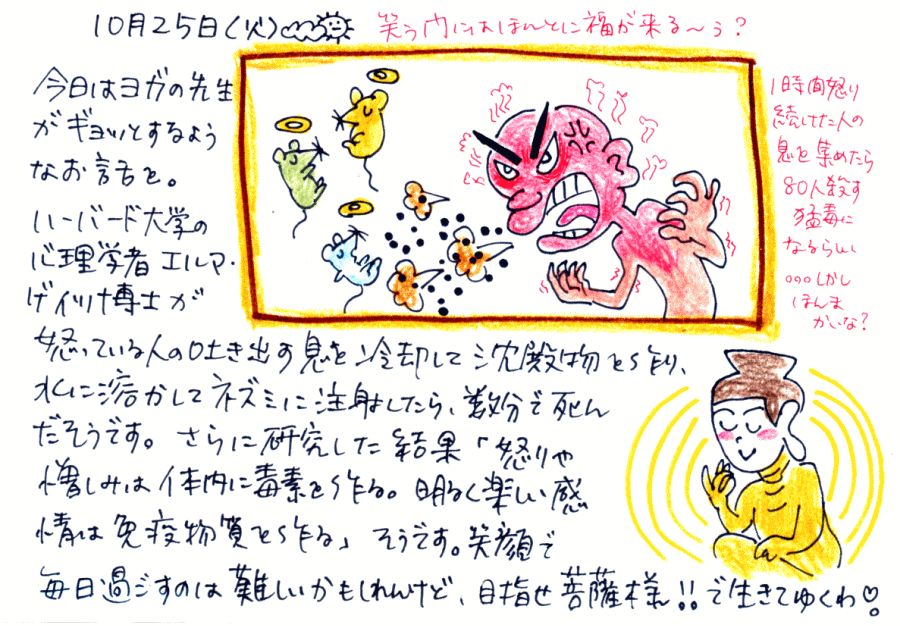 10月25日(火) 笑う門にはほんとに福が来る〜う?
今日はヨガの先生
がギョッとするよう
なお話を。
ハーバード大学の
心理学者エルマ・
ゲイツ博士が
怒っている人の吐き出す息を冷却して沈殿物を作り、
水に溶かしてネズミに注射したら、数分で死ん
だそうです。さらに研究した結果「怒りや
憎しみは体内に毒素を作る。明るく楽しい感
情は免疫物質を作る」そうです。笑顔で
毎日過ごすのは難しいかもしれんけど、目指せ菩薩様!!で生きてゆくわ♡
1時間怒り
続けてた人の
息を集めたら
80人殺す
猛毒に
なるらしい
ooo しかし
ほんま
かいな?